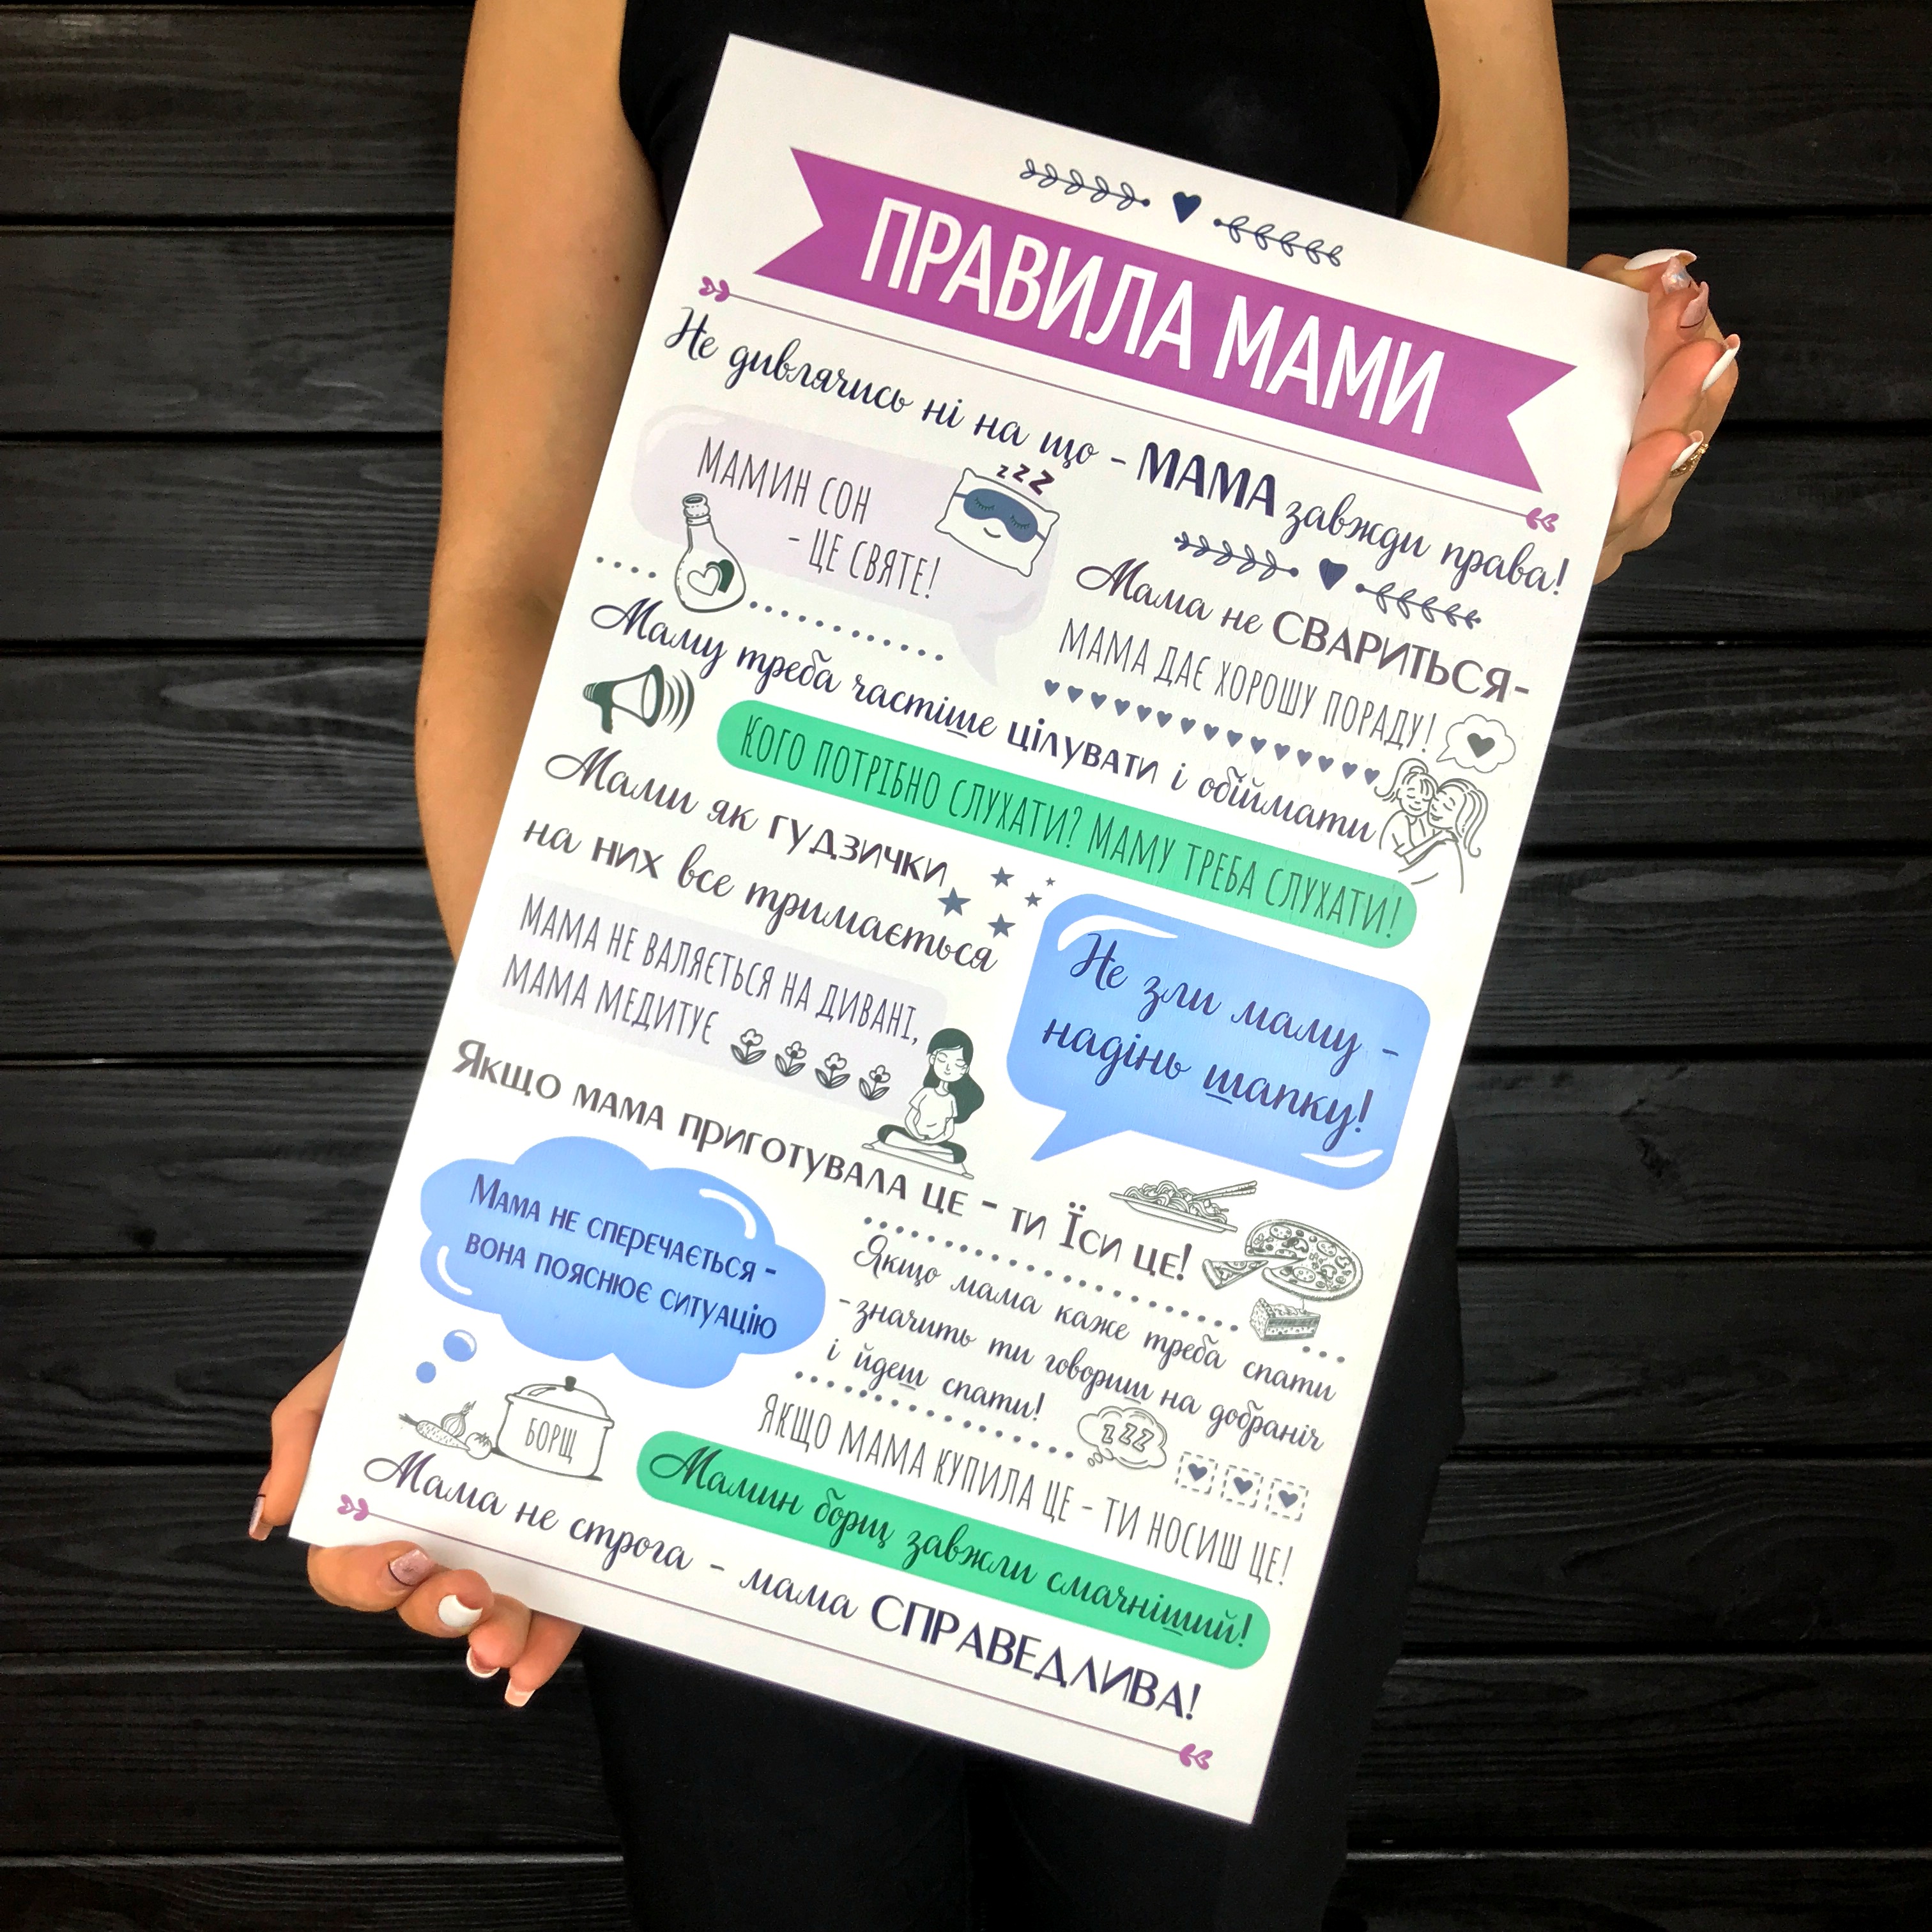 ПРАВИЛА МАМИ
Не дивлячись ні на що - МАМА завжди права!
МАМИН СОН
- ЦЕ СВЯТЕ!
zzz
Мама не СВАРИТЬСЯ-
МАМА ДАЄ ХОРОШУ ПОРАДУ!
Маму треба частіше цілувати і обіймати
КОГО ПОТРІБНО СЛУХАТИ? МАМУ ТРЕБА СЛУХАТИ!
Мами як гудзички
на них все тримається
МАМА НЕ ВАЛЯЄТЬСЯ НА ДИВАНІ,
МАМА МЕДИТУЄ
Не зли маму -
надінь шапку!
Якщо мама приготувала це - ти Їси це!
Мама не сперечається -
вона пояснює ситуацію
Якщо мама каже треба спати
-значить ти говориш на добраніч
і йдеш спати!
zzz
ЯКЩО МАМА КУПИЛА ЦЕ - ТИ НОСИШ ЦЕ!
БОРЩ
Мамин борщ завжли смачніший!
Мама не строга - мама СПРАВЕДЛИВА!